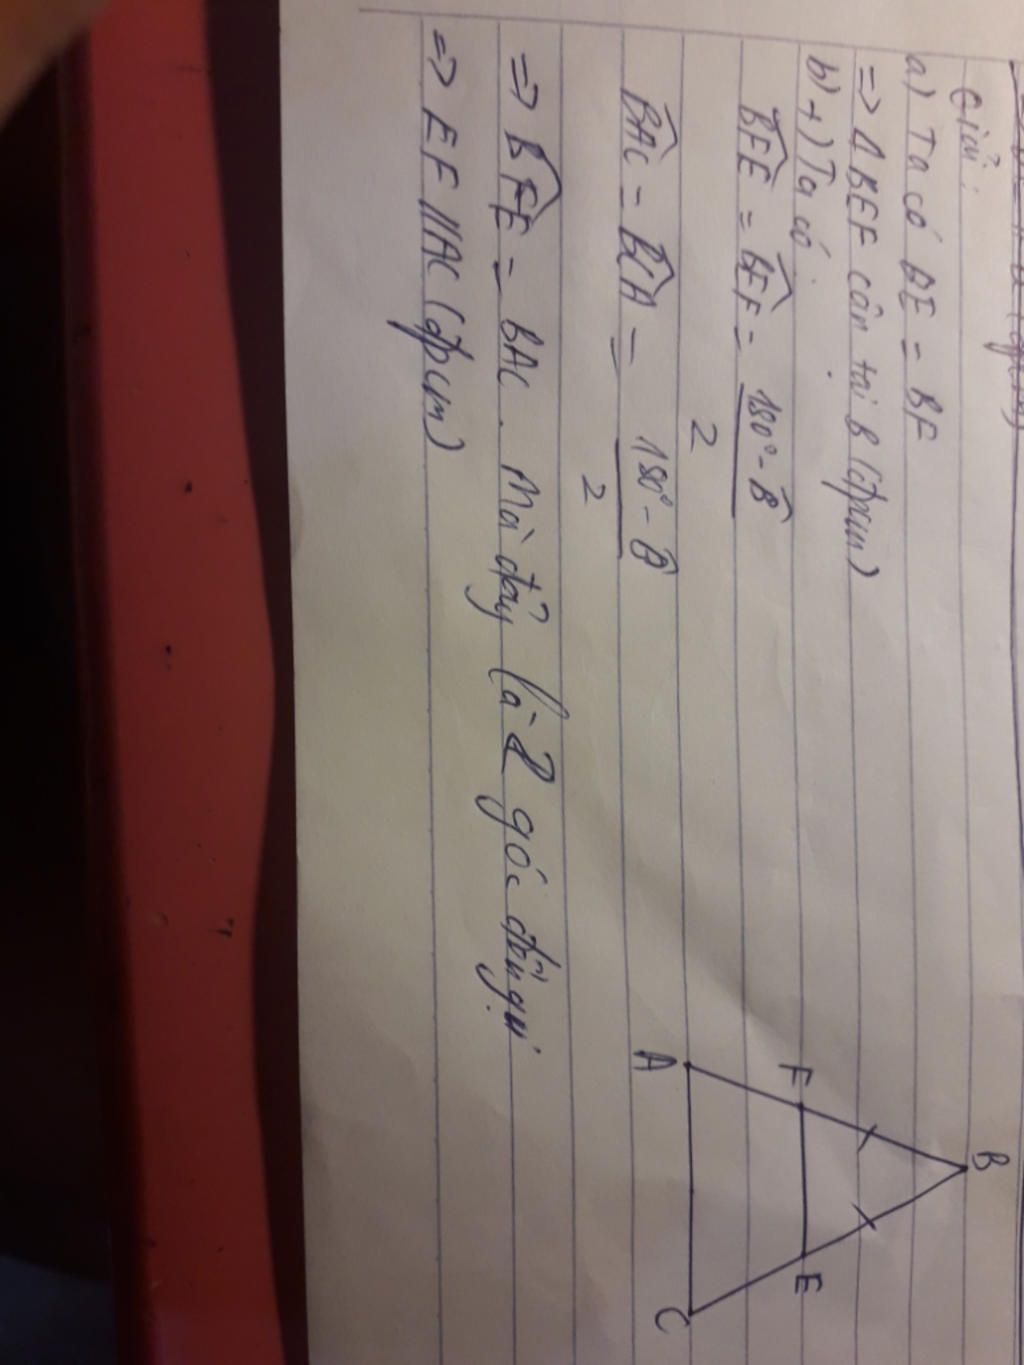 Giải:
a) Ta có BE = BF
=> Δ BEF cân tại B (đpcm)
b) +) Ta có:
BFE = BEF = 180° - B
2
BAC = BCA = 180° - B
2
=> BFE = BAC. Mà đây là 2 góc đồng vị
=> EF // AC (đpcm)
B
F
E
A
C